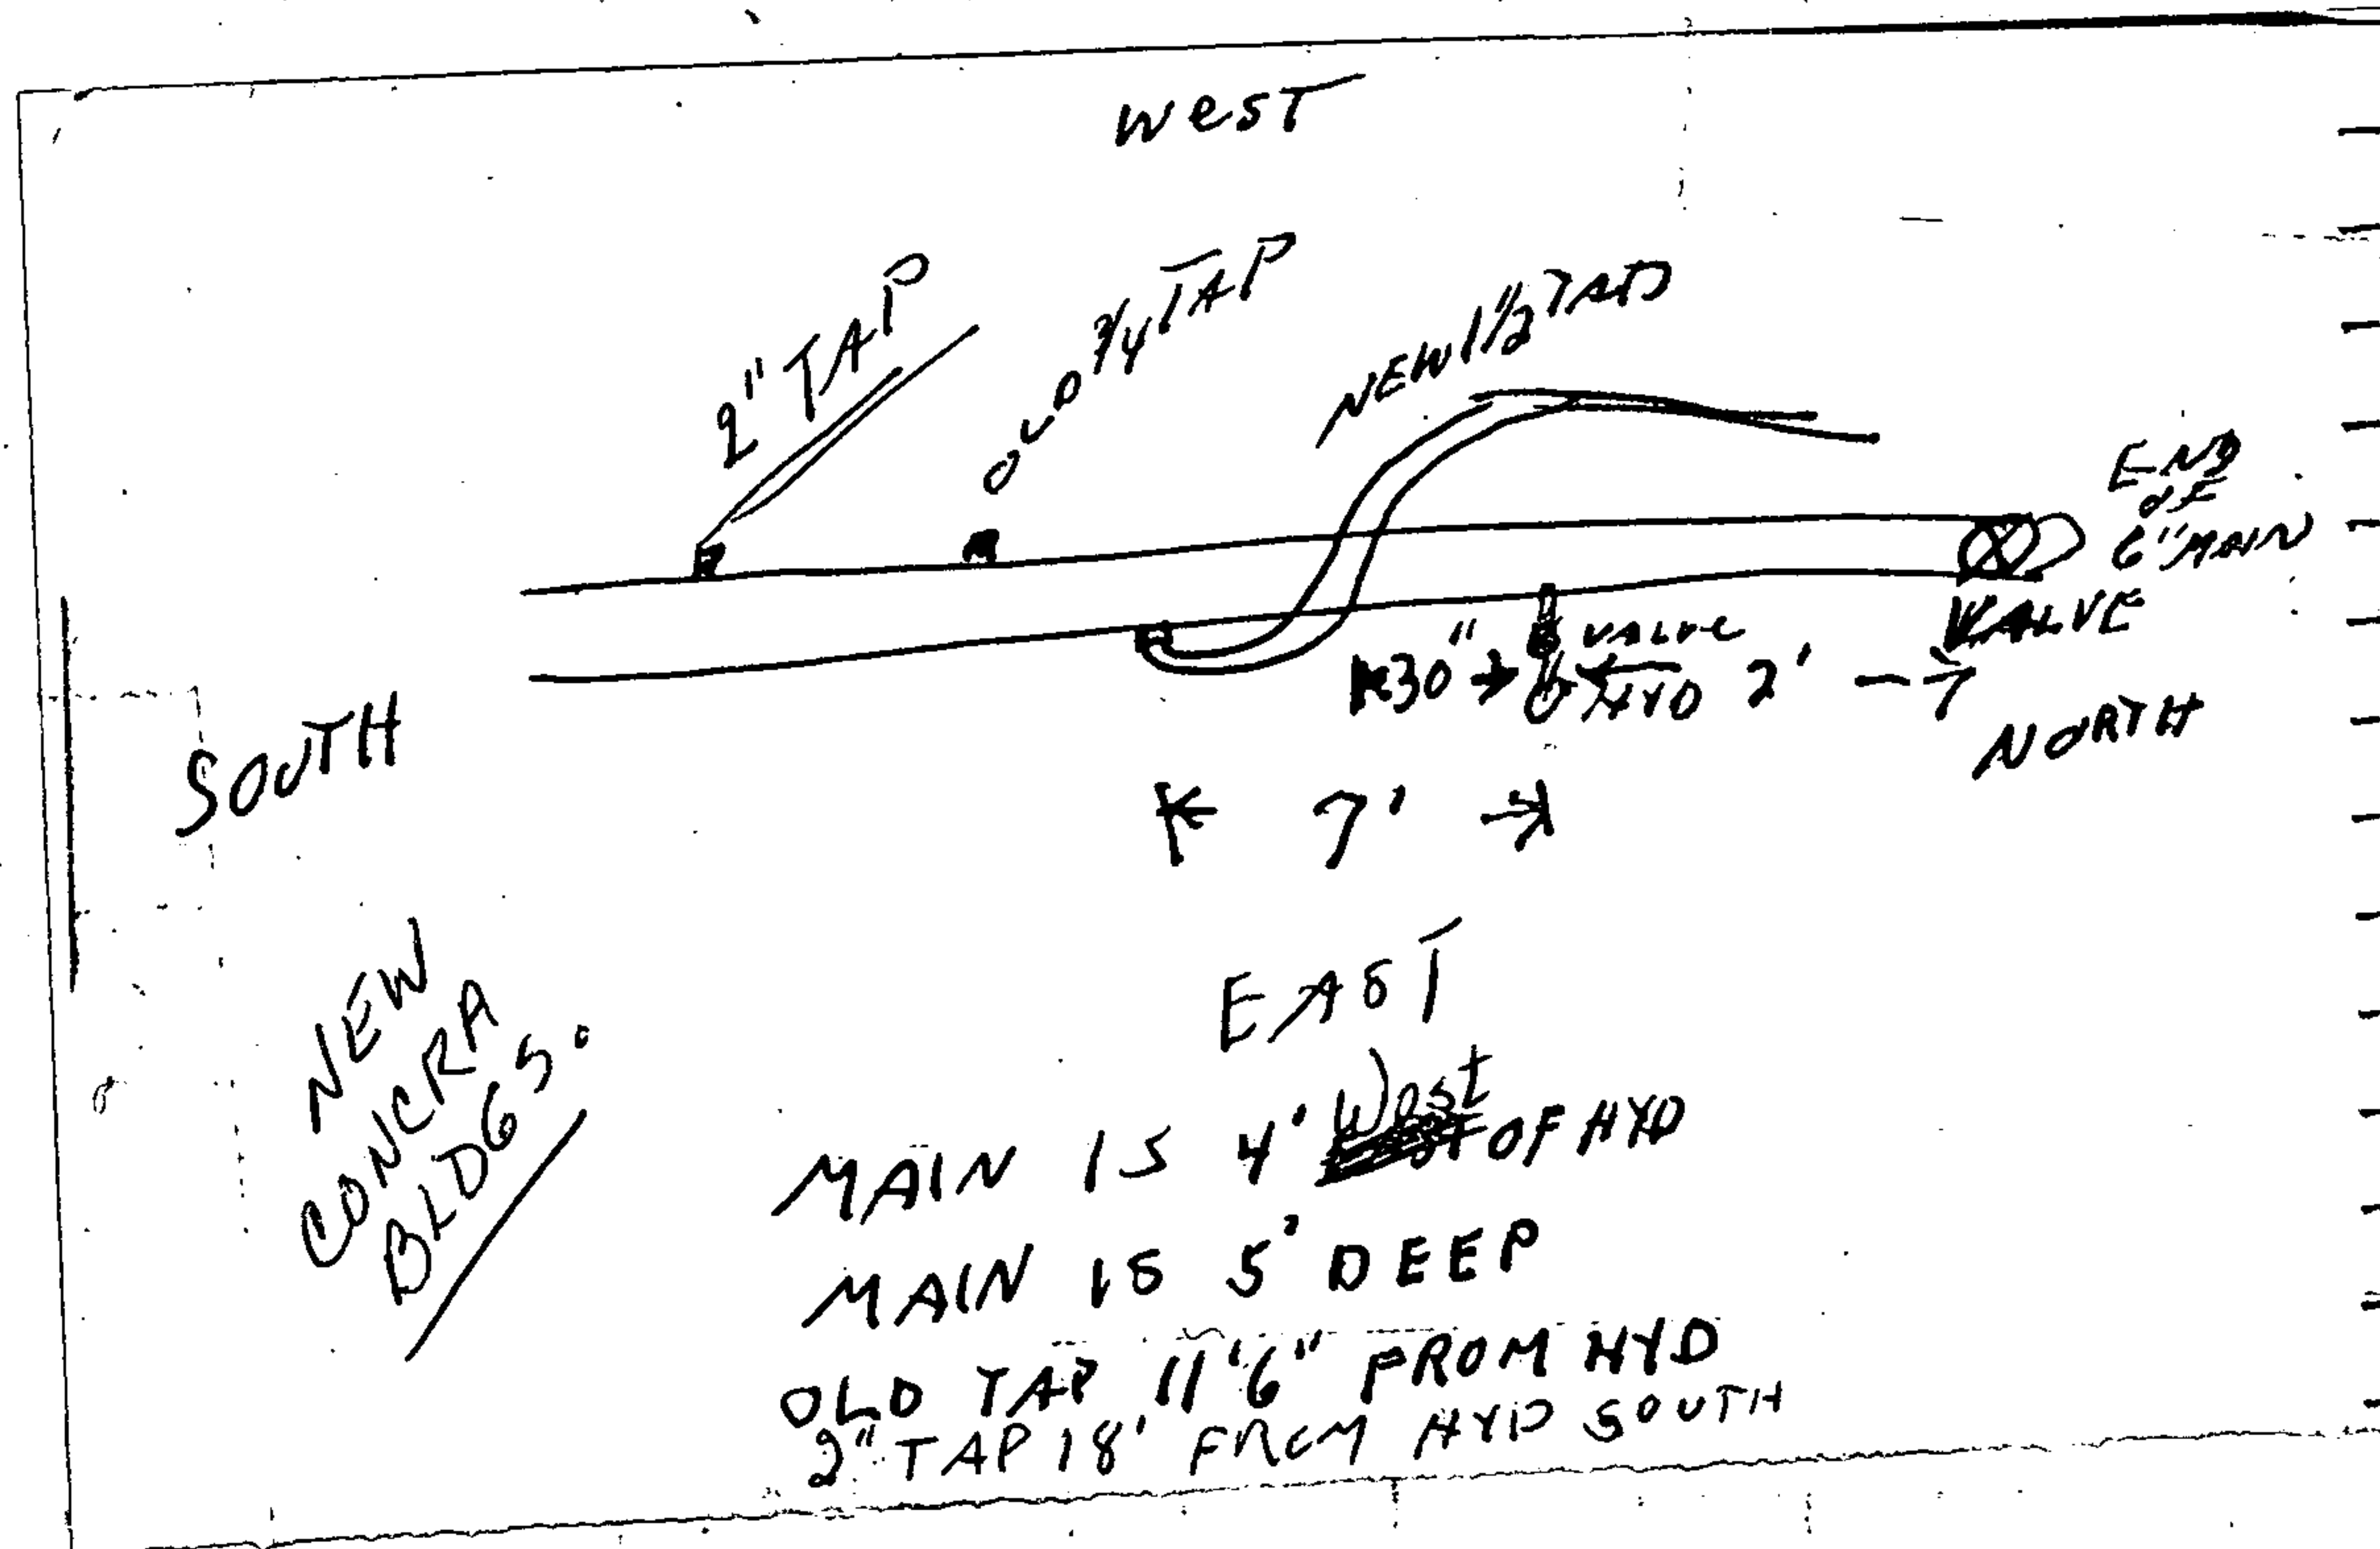 WesT
2" TAP
OLD 3/4 TAP
NEW 1 1/2" TAP
END
OF
6" MAIN
VALVE
VALVE
30"
HYD 2'
NORTH
SOUTH
7'
EAST
NEW
CONCRA
BLDGS.
MAIN IS 4' West OF HYD
MAIN IS 5' DEEP
OLD TAP 11'6" FROM HYD
2" TAP 18' FROM HYD SOUTH